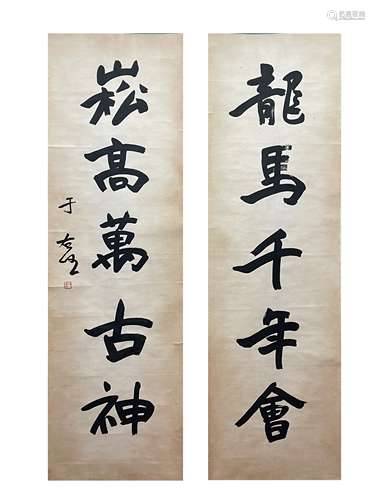 龍馬千年會
崧高萬古神
于右任